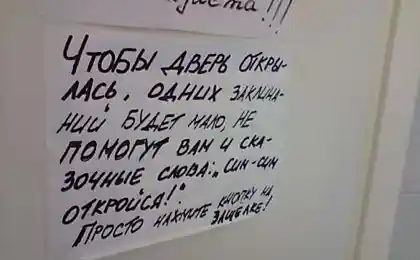 Чтобы дверь откры-
лась, одних заклина-
ний будет мало, не
помогут вам и ска-
зочные слова: „Сим-сим
откройся!"
Просто нажмите кнопку на
защелке!